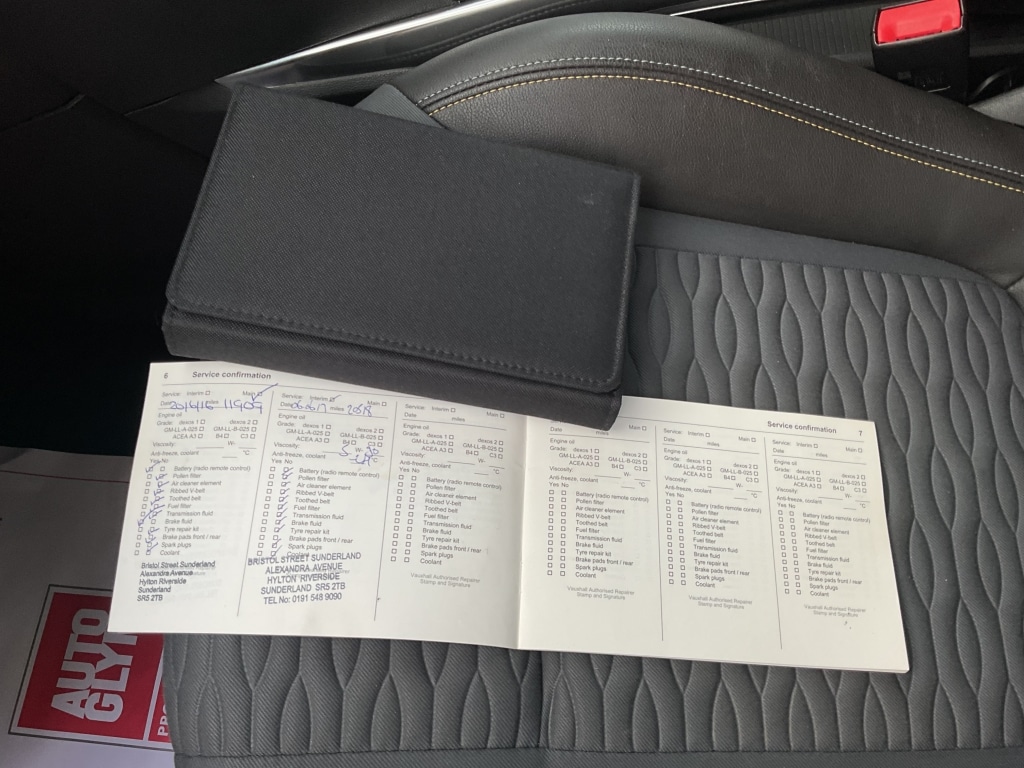 6 Service confirmation
Service: Interim ☐ Main ☐
Date miles 11909
Engine oil
Grade: dexos 1 ☐ dexos 2 ☐
GM-LL-A-025 ☐ GM-LL-B-025 ☐
ACEA A3 ☐ B4 ☐ C3 ☐
Viscosity: W-
Anti-freeze, coolant °C
Yes No
Battery (radio remote control)
Pollen filter
Air cleaner element
Ribbed V-belt
Toothed belt
Fuel filter
Transmission fluid
Brake fluid
Tyre repair kit
Brake pads front / rear
Spark plugs
Coolant
Bristol Street Sunderland
Alexandra Avenue
Hylton Riverside
Sunderland
SR5 2TB
Service: Interim ☐ Main ☐
Date miles 2018
Engine oil
Grade: dexos 1 ☐ dexos 2 ☐
GM-LL-A-025 ☐ GM-LL-B-025 ☐
ACEA A3 ☐ B4 ☐ C3 ☐
Viscosity: W-
Anti-freeze, coolant °C
Yes No
Battery (radio remote control)
Pollen filter
Air cleaner element
Ribbed V-belt
Toothed belt
Fuel filter
Transmission fluid
Brake fluid
Tyre repair kit
Brake pads front / rear
Spark plugs
BRISTOL STREET SUNDERLAND
ALEXANDRA AVENUE
HYLTON RIVERSIDE
SUNDERLAND SR5 2TB
TEL No: 0191 548 9090
Service: Interim ☐ Main ☐
Date miles
Engine oil
Grade: dexos 1 ☐ dexos 2 ☐
GM-LL-A-025 ☐ GM-LL-B-025 ☐
ACEA A3 ☐ B4 ☐ C3 ☐
Viscosity: W-
Anti-freeze, coolant °C
Yes No
Battery (radio remote control)
Pollen filter
Air cleaner element
Ribbed V-belt
Toothed belt
Fuel filter
Transmission fluid
Brake fluid
Tyre repair kit
Brake pads front / rear
Spark plugs
Coolant
Vauxhall Authorised Repairer
Stamp and Signature
Service confirmation 7
Main ☐
Date miles
Engine oil
Grade: dexos 1 ☐ dexos 2 ☐
GM-LL-A-025 ☐ GM-LL-B-025 ☐
ACEA A3 ☐ B4 ☐ C3 ☐
Viscosity: W-
Anti-freeze, coolant °C
Yes No
Battery (radio remote control)
Pollen filter
Air cleaner element
Ribbed V-belt
Toothed belt
Fuel filter
Transmission fluid
Brake fluid
Tyre repair kit
Brake pads front / rear
Spark plugs
Coolant
Vauxhall Authorised Repairer
Stamp and Signature
Service: Interim ☐ Main ☐
Date miles
Engine oil
Grade: dexos 1 ☐ dexos 2 ☐
GM-LL-A-025 ☐ GM-LL-B-025 ☐
ACEA A3 ☐ B4 ☐ C3 ☐
Viscosity: W-
Anti-freeze, coolant °C
Yes No
Battery (radio remote control)
Pollen filter
Air cleaner element
Ribbed V-belt
Toothed belt
Fuel filter
Transmission fluid
Brake fluid
Tyre repair kit
Brake pads front / rear
Spark plugs
Coolant
Vauxhall Authorised Repairer
Stamp and Signature
Service: Interim ☐ Main ☐
Date miles
Engine oil
Grade: dexos 1 ☐ dexos 2 ☐
GM-LL-A-025 ☐ GM-LL-B-025 ☐
ACEA A3 ☐ B4 ☐ C3 ☐
Viscosity: W-
Anti-freeze, coolant °C
Yes No
Battery (radio remote control)
Pollen filter
Air cleaner element
Ribbed V-belt
Toothed belt
Fuel filter
Transmission fluid
Brake fluid
Tyre repair kit
Brake pads front / rear
Spark plugs
Coolant
Vauxhall Authorised Repairer
Stamp and Signature
AUTO